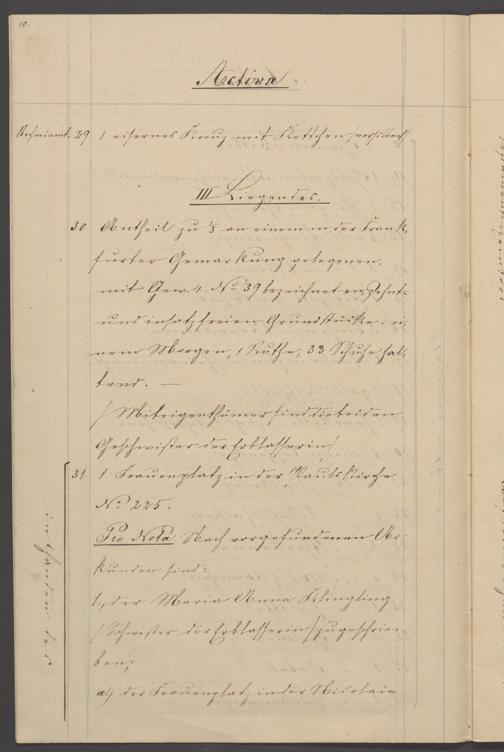 10.
Activa
29 1 eisernes Kreuz mit Kettchen /versilbert/
III Liegendes.
30 Antheil zu 1/3 an einem in der Frank-
furter Gemarkung gelegenen,
mit Gew. 4. No 39 bezeichneten, Zehnt-
und insatzfreien Grundstücke: ei-
nem Morgen, 1 Ruthe, 33 Schuhe hal-
tend. —
/ Miteigenthümer sind die beiden
Geschwister der Erblasserin /
31 1 Frauenplatz in der Paulskirche
No 225.
Pro Nota. Nach vorgefundenen Ur-
kunden sind:
1., der Maria Anna Klingling
/ Schwester der Erblasserin / zugeschrie-
ben;
a) der Frauenplatz in der Nicolai-